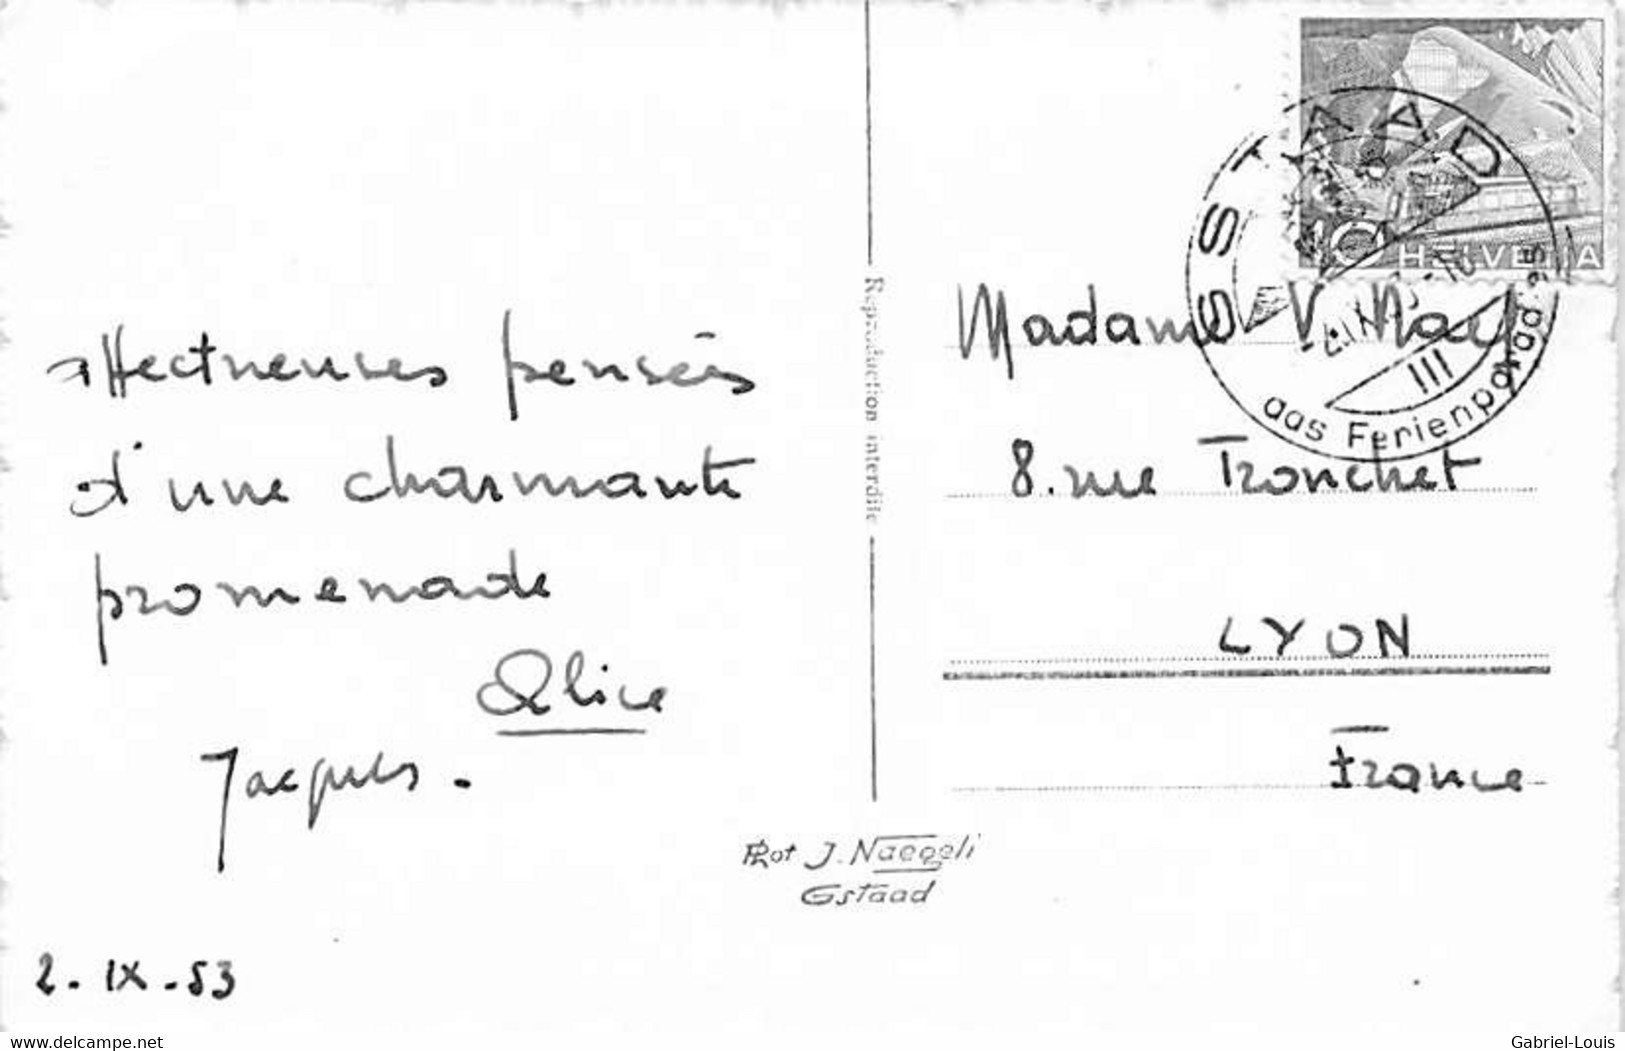 affectueuses pensées
d'une charmante
promenade
Alice
Jacques.
2. IX. 53
Reproduction interdite
Phot J. Naegeli
Gstaad
10 HELVETIA
GSTAAD
das Ferienparadies
Madame V.
8. rue Tronchet
LYON
France
www.delcampe.net
Gabriel-Louis